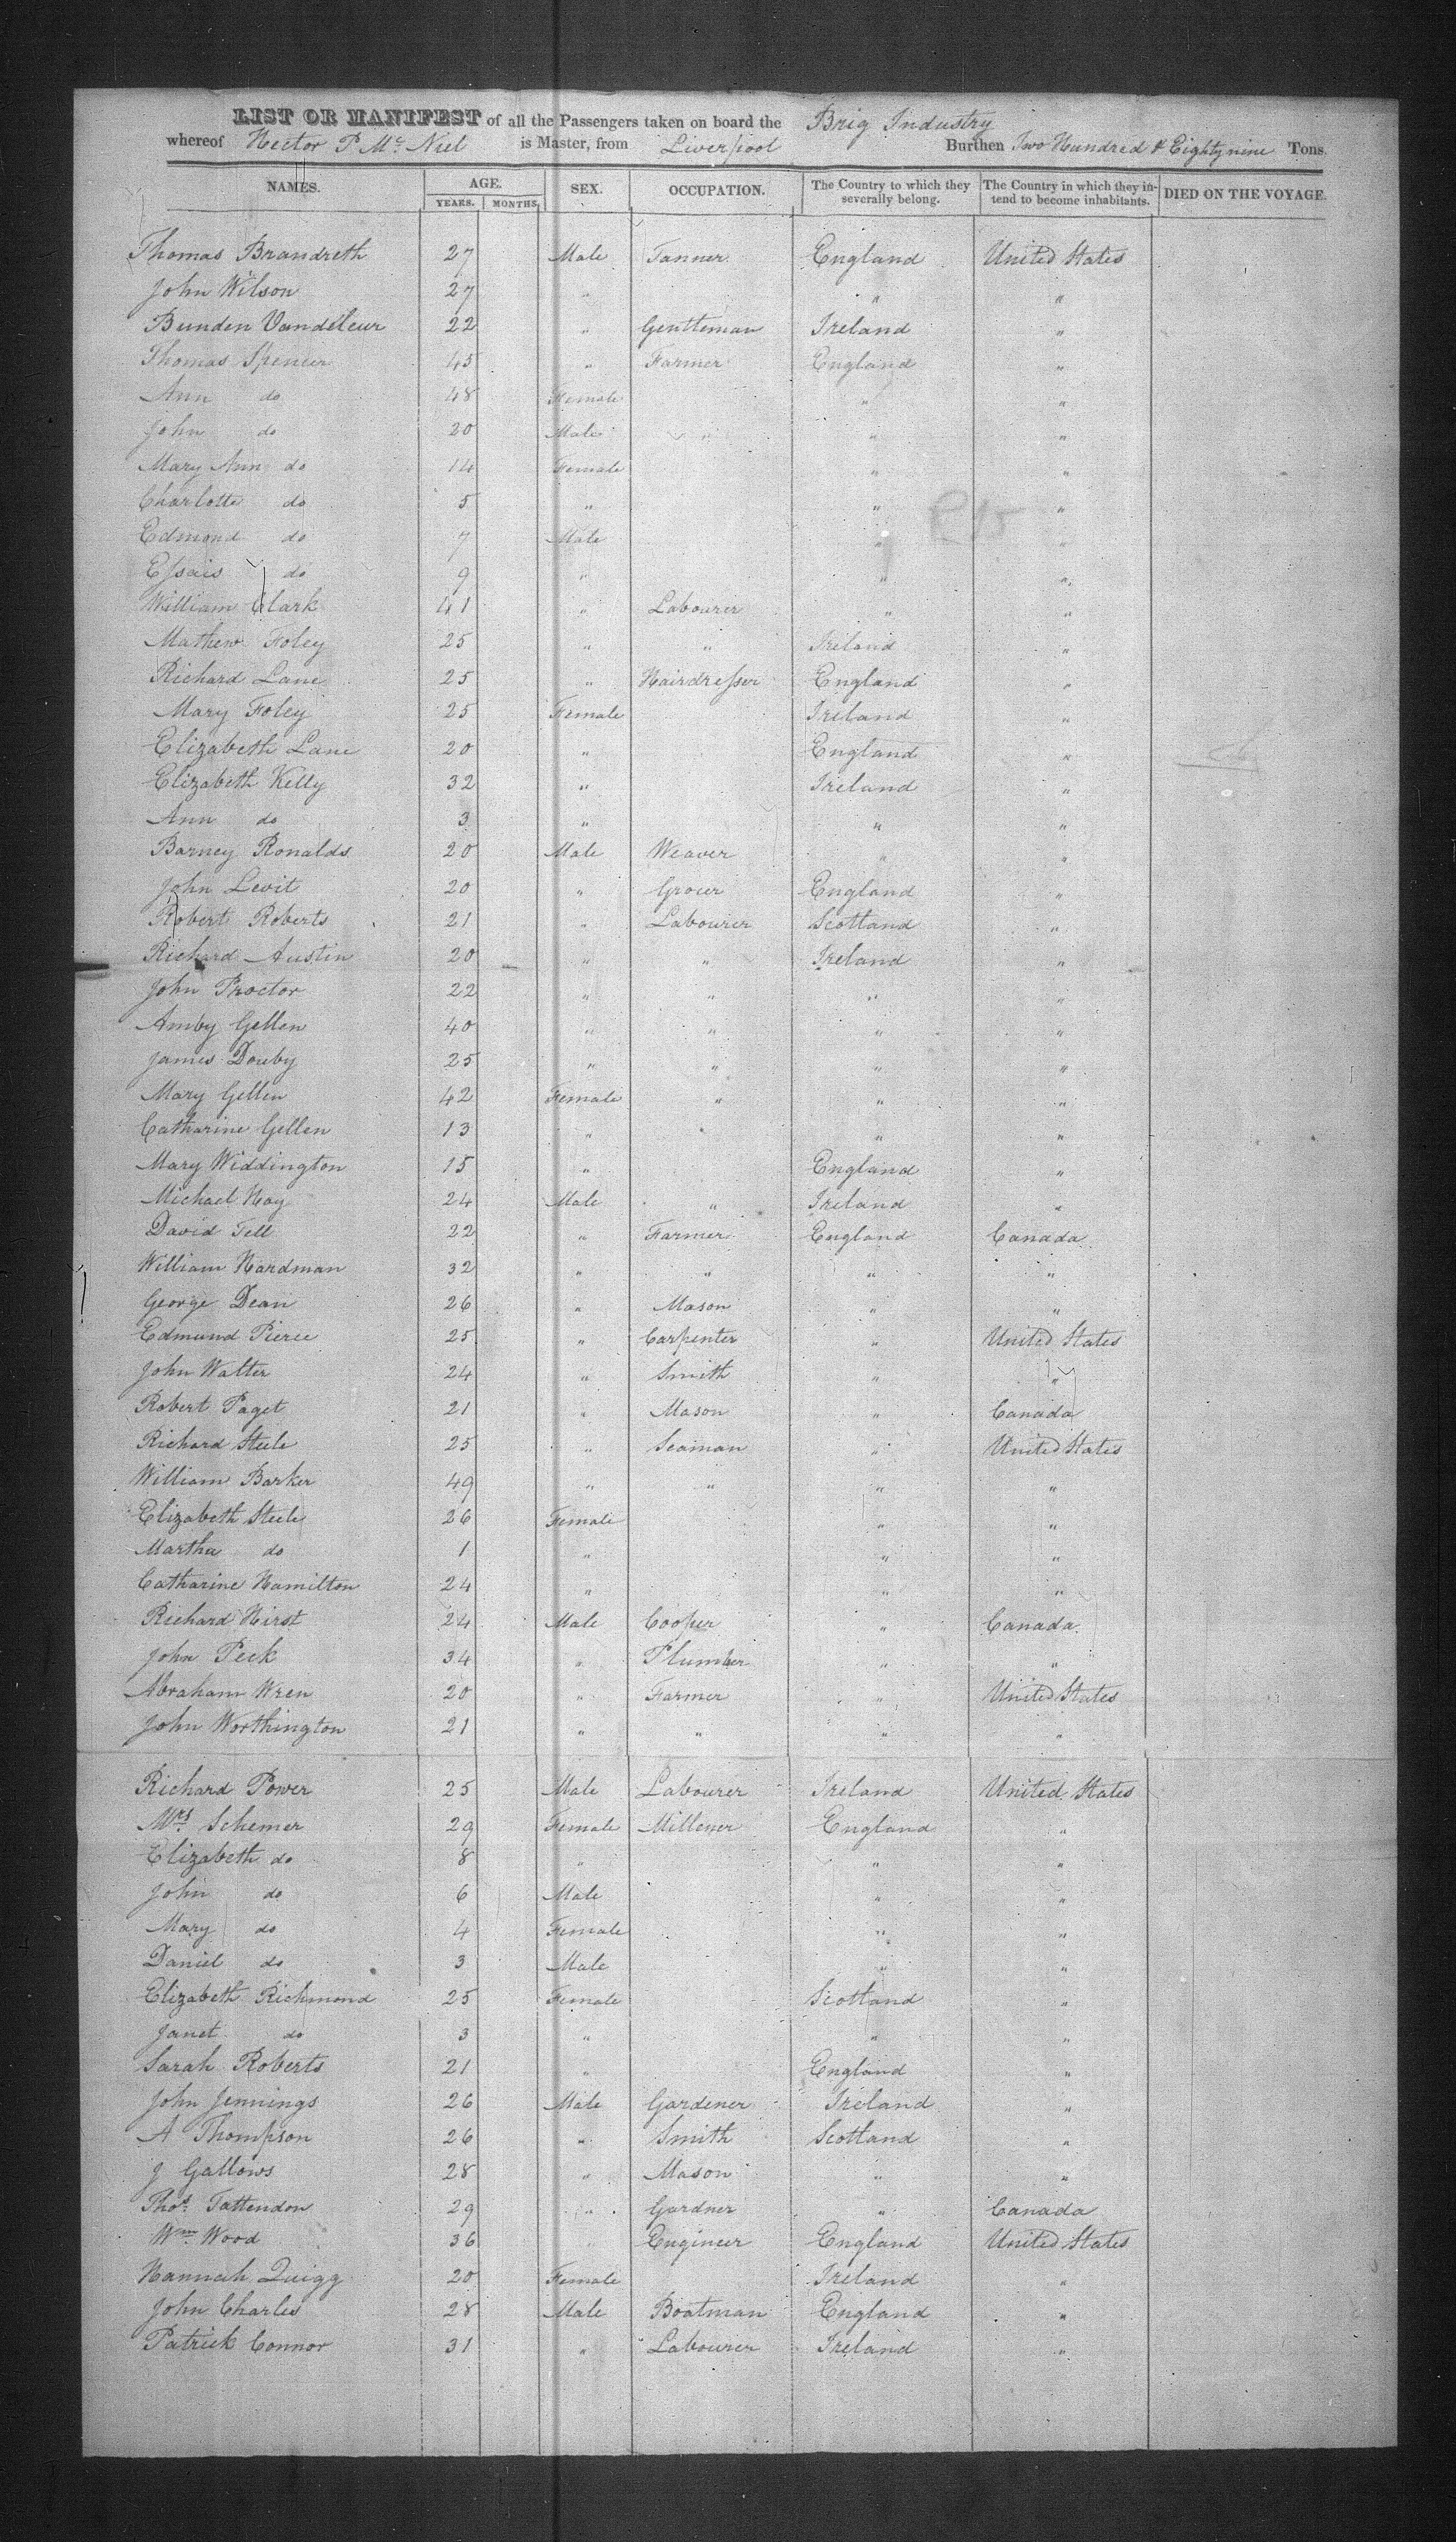 LIST OR MANIFEST of all the Passengers taken on board the Brig Industry
whereof Hector P McNiel is Master, from Liverpool Burthen Two Hundred & Eighty nine Tons.
NAMES. AGE. SEX. OCCUPATION. The Country to which they severally belong. The Country in which they intend to become inhabitants. DIED ON THE VOYAGE.
YEARS. MONTHS.
Thomas Brandreth 27 Male Tanner England United States
John Wilson 27 " " "
Bunden Vandeleur 22 " Gentleman Ireland "
Thomas Spencer 45 " Farmer England "
Ann do 48 Female " "
John do 20 Male " " "
Mary Ann do 14 Female " "
Charlotte do 5 " " "
Edmond do 7 Male " "
Essais do 9 " " "
William Clark 41 " Labourer " "
Mathew Foley 25 " " Ireland "
Richard Lane 25 " Hairdresser England "
Mary Foley 25 Female Ireland "
Elizabeth Lane 20 " England "
Elizabeth Kelly 32 " Ireland "
Ann do 3 " " "
Barney Ronalds 20 Male Weaver " "
John Levit 20 " Grocer England "
Robert Roberts 21 " Labourer Scotland "
Richard Austin 20 " " Ireland "
John Proctor 22 " " " "
Amby Gellen 40 " " " "
James Douby 25 " " " "
Mary Gellen 42 Female " " "
Catharine Gellen 13 " " "
Mary Widdington 15 " England "
Michael Hay 24 Male " Ireland "
David Tell 22 " Farmer England Canada
William Hardman 32 " " " "
George Dean 26 " Mason " "
Edmund Pierce 25 " Carpenter " United States
John Walter 24 " Smith " "
Robert Paget 21 " Mason " Canada
Richard Steele 25 " Seaman " United States
William Barker 49 " " " "
Elizabeth Steele 26 Female " "
Martha do 1 " " "
Catharine Hamilton 24 " " "
Richard Hirst 24 Male Cooper " Canada
John Peck 34 " Plumber " "
Abraham Wren 20 " Farmer " United States
John Worthington 21 " " " "
Richard Power 25 Male Labourer Ireland United States
Mrs Schemer 29 Female Millener England "
Elizabeth do 8 " " "
John do 6 Male " "
Mary do 4 Female " "
Daniel do 3 Male " "
Elizabeth Richmond 25 Female Scotland "
Janet do 3 " " "
Sarah Roberts 21 " England "
John Jennings 26 Male Gardener Ireland "
A Thompson 26 " Smith Scotland "
J Gallows 28 " Mason " "
Thos Tattendon 29 " Gardner " Canada
Wm Wood 36 " Engineer England United States
Hannah Quigg 20 Female Ireland "
John Charles 28 Male Boatman England "
Patrick Connor 31 " Labourer Ireland "